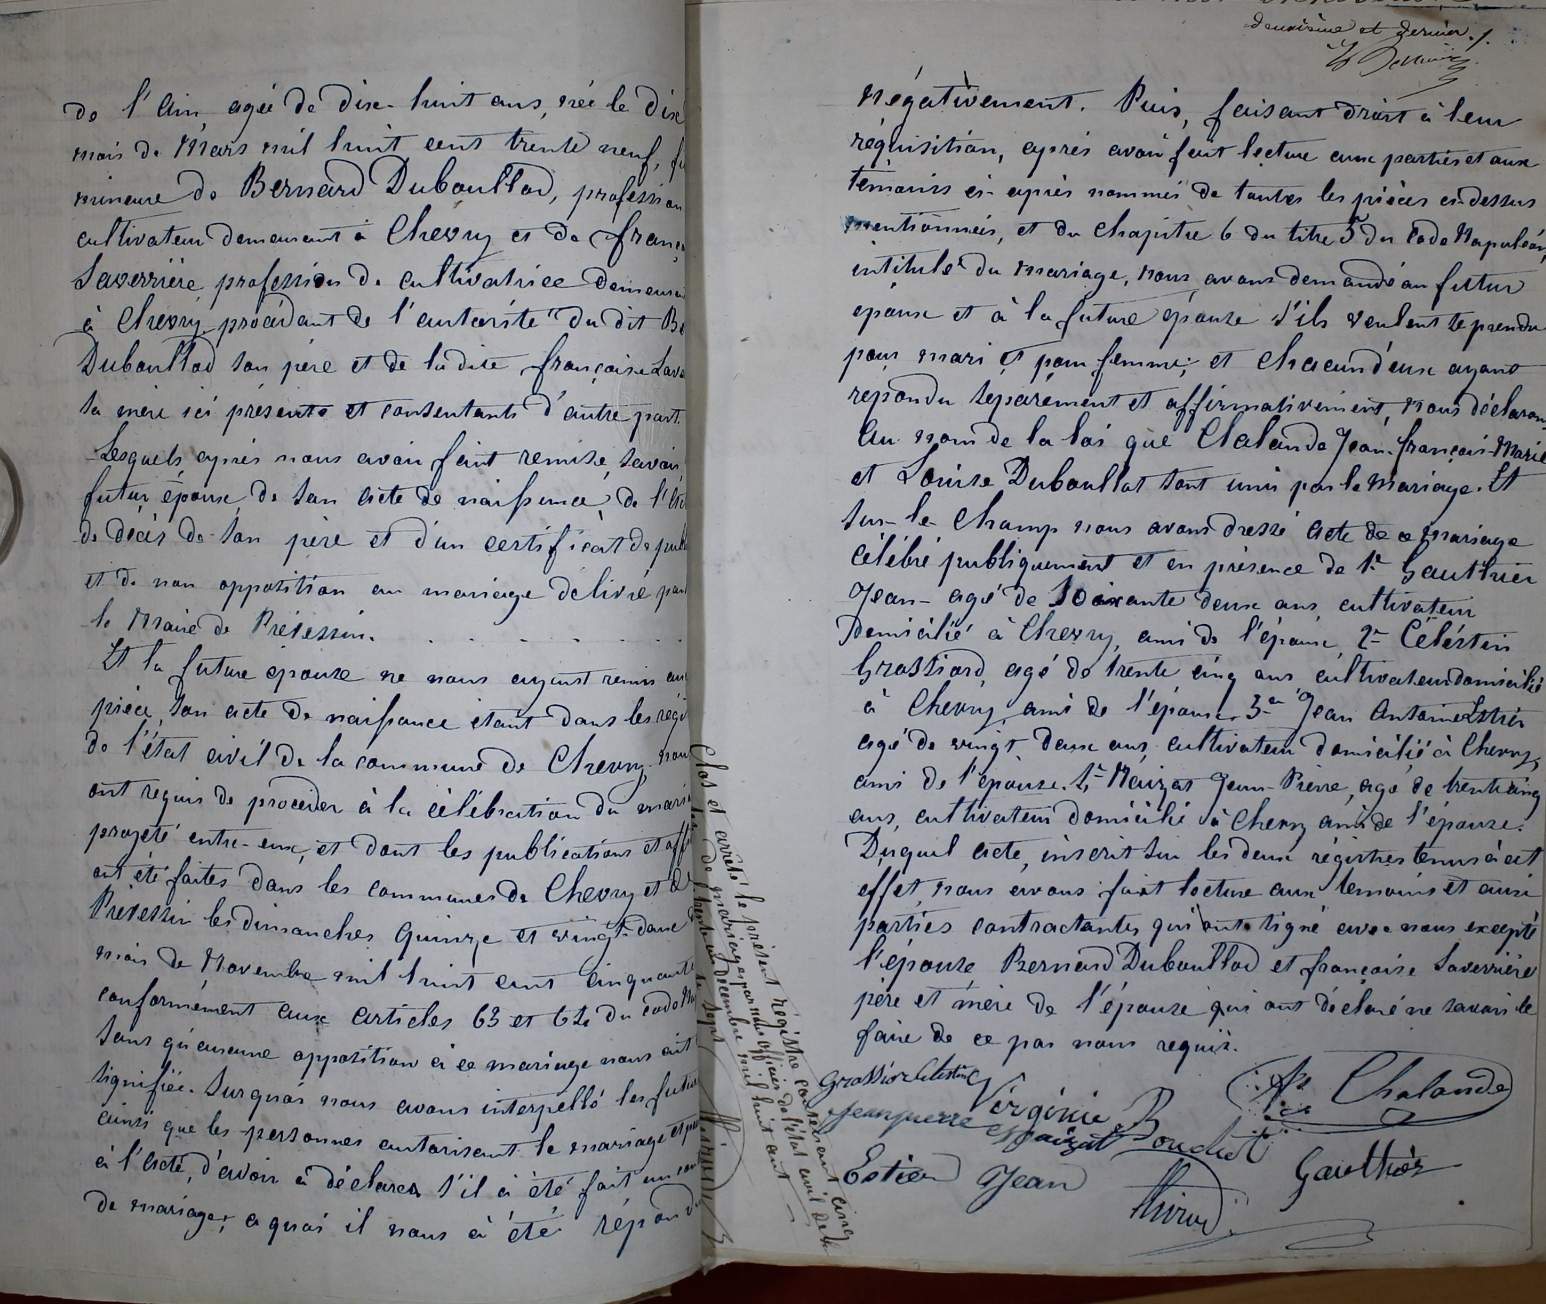 de l'Ain agée de dix-huit ans, née le dix
mois de Mars mil huit cent trente neuf, fi
mineure de Bernard Duboullod, profession
cultivateur demeurant à Chevry et de franç
Laverrière, profession de cultivatrice demeura
à Chevry procédant de l'autorité du dit Be
Duboullod son père et de ladite françoise Lave
sa mère ici présents et consentants d'autre part.
Lesquels, après nous avoir fait remise, savoir,
futur épouse, de son acte de naissance, de l'act
de décès de son père et d'un certificat de publ
et de non opposition au mariage délivré par
le Maire de Prévessin.
Et la future épouse ne nous ayant remis auc
pièce, son acte de naissance étant dans les regis
de l'état civil de la commune de Chevry, nous
ont requis de procéder à la célébration du maria
projeté entre-eux, et dont les publications et affi
ont été faites dans les communes de Chevry et de
Prévessin les dimanches quinze et vingt-deux d
mois de Novembre mil huit cent cinquante
conformément aux articles 63 et 64 du code Na
sans qu'aucune opposition à ce mariage nous ait
signifiée. Surquoi nous avons interpellé les futurs
ainsi que les personnes autorisant le mariage et pré
à l'acte, d'avoir à déclarer s'il a été fait un con
de mariage; a quoi il nous a été répondu
Clos et arrêté le présent régistre contenant cinq
actes de mariages par nous officier de l'état civil de la
le trente un décembre mil huit cent
sept
deuxième et dernier ./.
négativement. Puis, faisant droit à leur
réquisition, après avoir fait lecture aux parties et aux
témoins ci-après nommés de toutes les pièces ci-dessus
mentionnées, et du chapitre 6 du titre 5 du Code Napoléon,
intitulé du mariage, nous avons demandé au futur
epoux et à la future épouse s'ils veulent se prendre
pour mari et pour femme; et chacun d'eux ayant
répondu séparément et affirmativement, nous déclarons
Au nom de la loi que Chalande Jean-françois-Marie
et Louise Duboullot sont unis par le Mariage. Et
sur-le-champ nous avons dressé acte de ce mariage
célébré publiquement et en présence de 1° Gaulthier
Jean- agé de soixante deux ans, cultivateur
domicilié à Chevry, ami de l'épouse, 2° Céléstin
Grossiord, agé de trente cinq ans cultivateur domicilié
à Chevry, ami de l'épouse. 3° Jean Antoine Estier
agé de vingt deux ans cultivateur domicilié à Chevry,
ami de l'épouse. 4° Maizat Jean-Pierre, agé de trente cinq
ans, cultivateur domicilié à Chevry ami de l'épouse.
Duquel acte, inscrit sur les deux régistres tenus à cet
effet, nous avons fait lecture aux temoins et aux
parties contractantes qui ont signé avec nous excepté
l'épouse Bernard Duboullod et françoise Laverrière
père et mère de l'épouse qui ont déclaré ne savoir le
faire de ce par nous requis.
Grossior Celestin
Virginie Bouchet
Chalande
Jean pierre Maizat
Estier Jean
Gaulthier
Girod